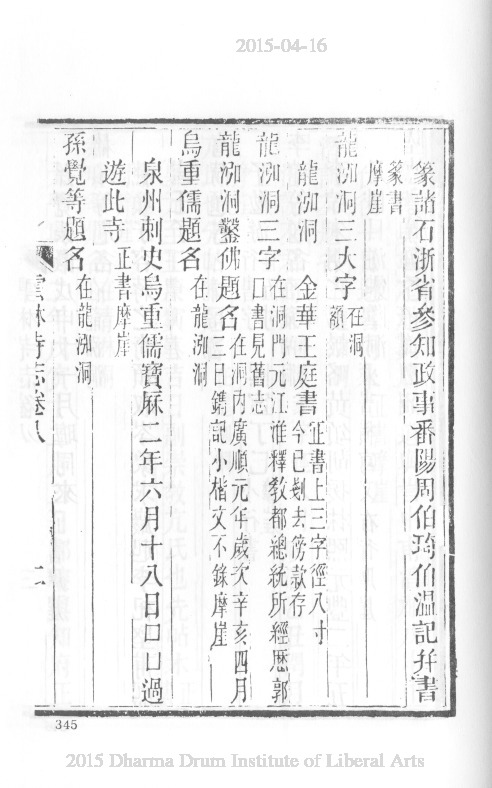 2015-04-16
篆諸石浙省參知政事番陽周伯琦伯温記并書
篆書
摩崖
龍泓洞三大字
在洞
額
龍泓洞 金華王庭書
正書上三字徑八寸
今已剗去傍款存
龍泓洞三字
在洞門元江淮釋敎都總統所經歷郭
口書見舊志
龍泓洞鑿佛題名
在洞內廣順元年歲次辛亥四月
三日鐫記小楷文不錄摩崖
烏重儒題名
在龍泓洞
泉州刺史烏重儒寶厤二年六月十八日口口過
遊此寺
正書摩崖
孫覺等題名
在龍泓洞
雲林寺志卷八
二
345
2015 Dharma Drum Institute of Liberal Arts